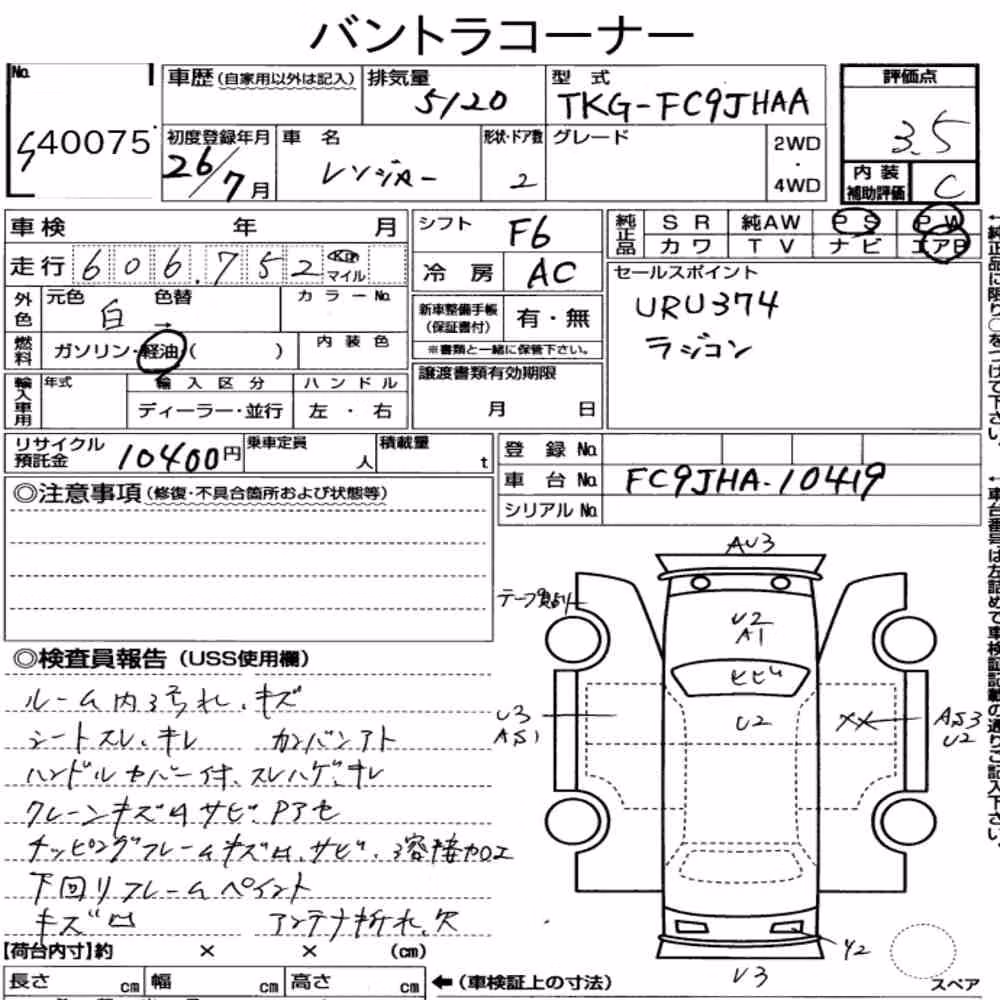 バントラコーナー
No. 40075
車歴(自家用以外は記入)
排気量 5120
型式 TKG-FC9JHAA
評価点 3.5
初度登録年月 26/7月
車名 レンジャー
形状・ドア数 2
グレード
2WD・4WD
内装補助評価 C
車検 年 月
シフト F6
純正品 SR 純AW PS PW
カワ TV ナビ エアB
走行 606.752 Km マイル
冷房 AC
セールスポイント
URU374
ラジコン
外色 元色 白 色替 → カラーNo.
新車整備手帳(保証書付) 有・無
※書類と一緒に保管下さい。
燃料 ガソリン・軽油( ) 内装色
輸入車用 年式 輸入区分 ハンドル
ディーラー・並行 左・右
譲渡書類有効期限
月 日
リサイクル預託金 10400円
乗車定員 人
積載量 t
登録No.
車台No. FC9JHA-10419
シリアルNo.
◎注意事項(修復・不具合箇所および状態等)
◎検査員報告(USS使用欄)
ルーム内汚れ、キズ
シートスレ、キレ カンバンアト
ハンドルカバー付、スレハゲ、キレ
クレーンキズ凹サビ、Pアセ
チッピングフレームキズ凹、サビ、溶接加工
下回りフレームペイント
キズ凹 アンテナ折れ、欠
【荷台内寸】約 × × (cm)
長さ cm 幅 cm 高さ cm
←(車検証上の寸法)
AU3
テープ貼り
U2
A1
ヒビ
U2
U3
AS1
XX
AS3
U2
Y2
U3
スペア
←純正品に限り○をつけて下さい。
←車台番号は左詰めで車検証記載の通りご記入下さい。